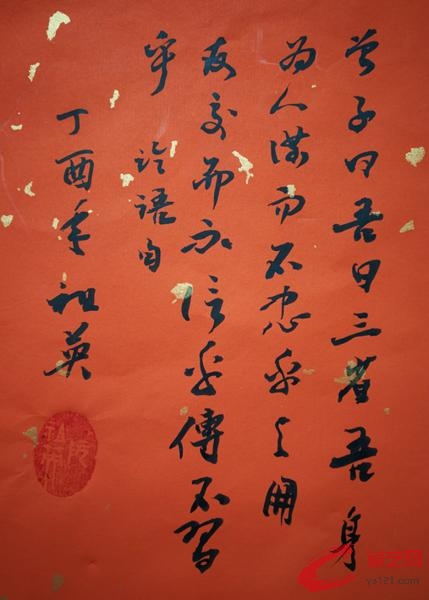 曾子曰吾日三省吾身
为人谋而不忠乎与朋
友交而不信乎傳不習
乎
论语
丁酉年祖英